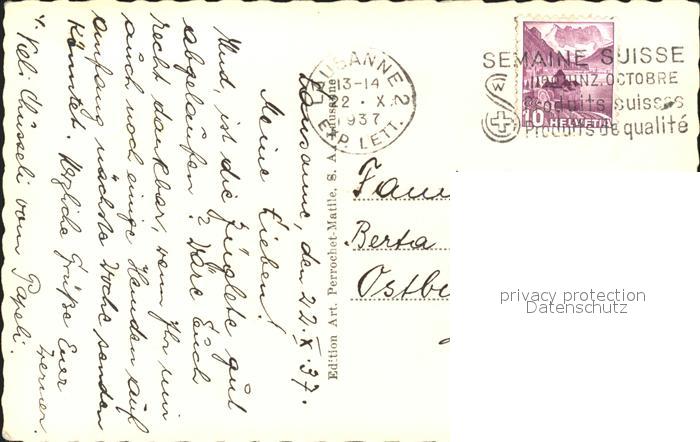 Lausanne, den 22. X. 37.
Meine Lieben!
Und, ist die Züglete gut
abgelaufen? Wäre Euch
recht dankbar, wenn Ihr mir
auch noch einige Hemden auf
anfang nächste Woche senden
könntet. Herzliche Grüsse Euer
Werner.
v. Papeli.
Edition Art. Perrochet-Matile, S. A. Lausanne
LAUSANNE 2
13-14
22. X.
1937
EXP. LETT.
SEMAINE SUISSE
QUINZ. OCTOBRE
Produits suisses
Produits de qualité
10 HELVETIA
Fam
Berta
Ostbe
privacy protection
Datenschutz